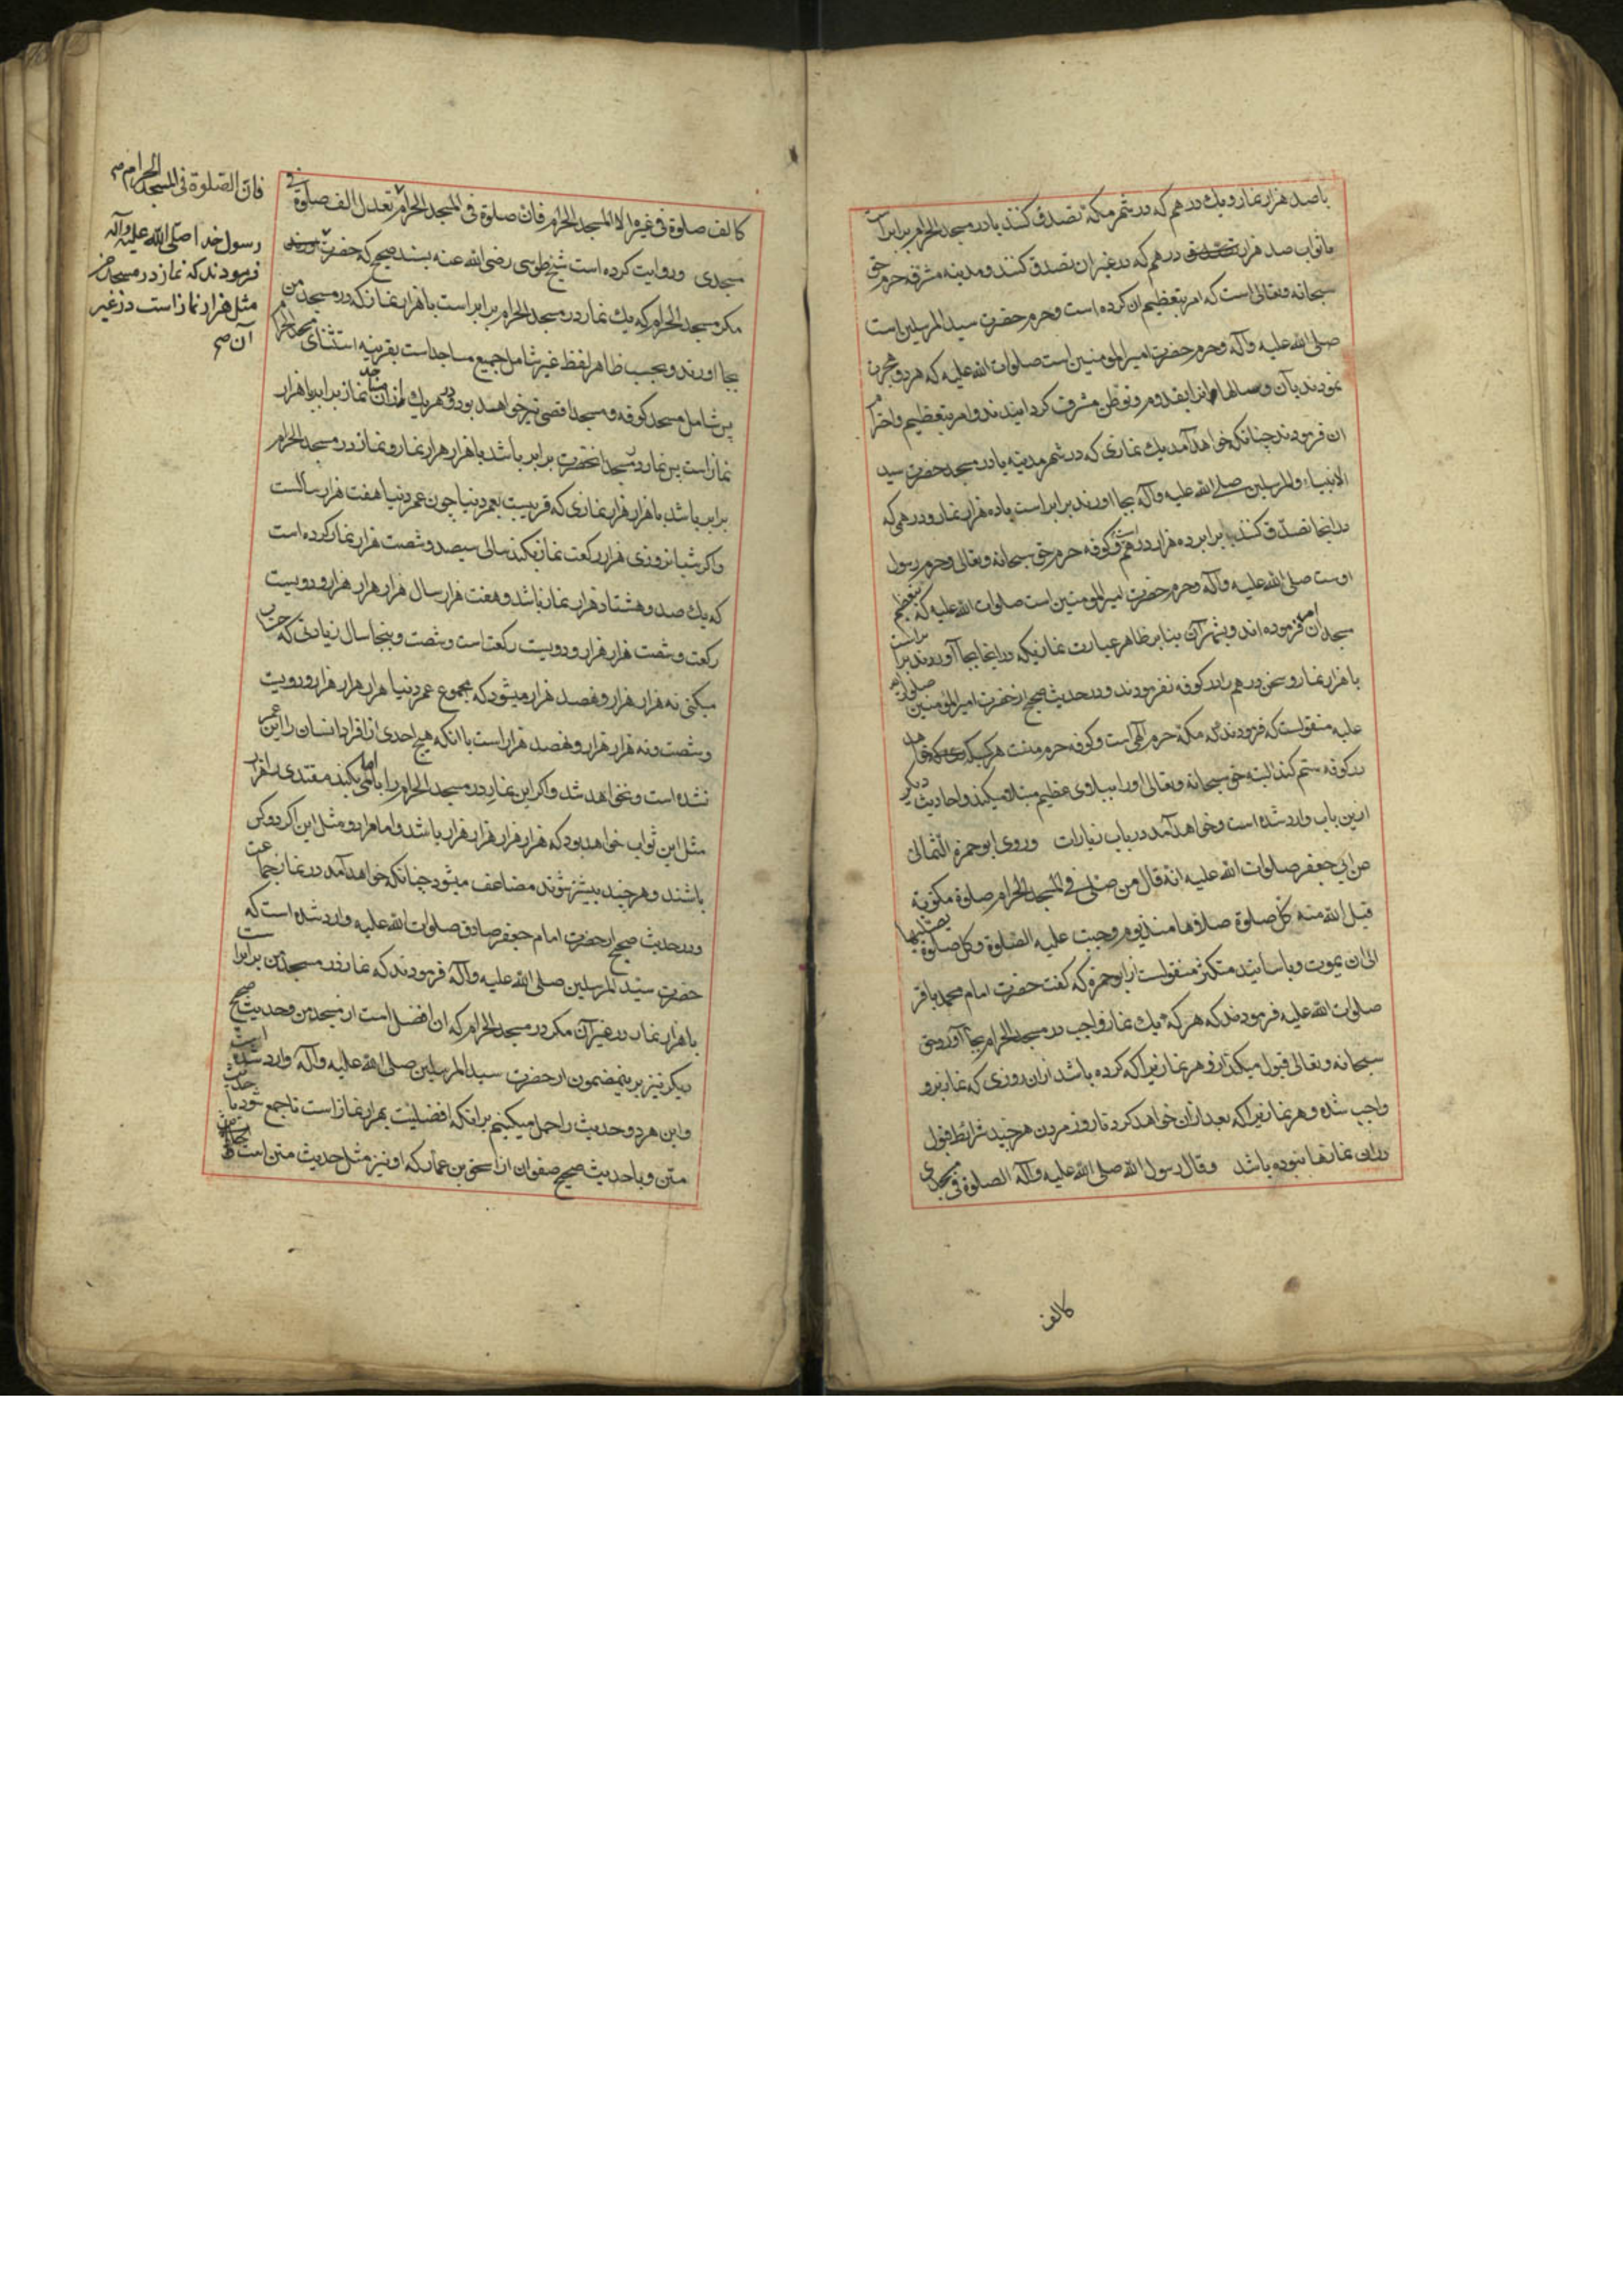 با صد هزار نماز و یك درهم که در شهر مکه تصدق کنند یا در مسجد الحرام برابر است
با ثواب صد هزار درهم که در غیر ان تصدق کنند و مدینه مشرفه حرم حق
سبحانه و تعالی است که امر بتعظیم ان کرده است و حرم حضرت سید المرسلین است
صلی الله علیه و آله و حرم حضرت امیر المومنین است صلوات الله علیه که هر دو هجرت
نمودند بآن و سالها انرا بقدوم و توطن مشرف کردانیدند و امر بتعظیم و احترام
ان فرمودند چنانکه خواهد آمد یك نمازی که در شهر مدینه یا در مسجد حضرت سید
الانبیاء و المرسلین صلی الله علیه و آله بجا اورند برابر است با ده هزار نماز و درهمی که
در انجا تصدق کنند برابر ده هزار درهم است و کوفه حرم حق سبحانه و تعالی و حرم رسول
اوست صلی الله علیه و آله و حرم حضرت امیر المومنین است صلوات الله علیه که تعظیم
مسجد ان فرموده اند و شهر آن بنابر ظاهر عبارت نمازیکه در اینجا بجا آورند برابر است
با هزار نماز و سخن درهم را در کوفه نفرمودند و در حدیث صحیح از حضرت امیر المؤمنین صلوات الله
علیه منقولست که فرمودند که مکه حرم آلهی است و کوفه حرم منست هر که
در کوفه ستم کند البته حق سبحانه و تعالی او را ببلاوی عظیم مبتلا میکند و احادیث دیکر
ازین باب وارد شده است و خواهد آمد در باب زیارات وروی ابو حمزة الثمالی
عن ابی جعفر صلوات الله علیه انه قال من صلی فی المسجد الحرام صلوة مکتوبة
قبل الله منه کل صلوة صلاها منذ یوم وجبت علیه الصلوة و کل صلوة یصلیها
الی ان یموت و باسانید متکثره منقولست از ابو حمزه که کفت حضرت امام محمد باقر
صلوات الله علیه فرمودند که هر که یك نماز واجب در مسجد الحرام بجا آورد حق
سبحانه و تعالی قبول میکند ازو هر نمازیرا که کرده باشد ازان روزی که نماز برو
واجب شده و هر نمازیرا که بعد ازان خواهد کرد تا روز مردن هر چند شرایط قبول
دران نمازها نبوده باشد وقال رسول الله صلی الله علیه و آله الصلوة فی مسجدی
کالف
کالف صلوة فی غیره الا المسجد الحرام فان صلوة فی المسجد الحرام تعدل الف صلوة فی
مسجدی و روایت کرده است شیخ طوسی رضی الله عنه بسند صحیح که حضرت
مکر مسجد الحرام که یك نماز در مسجد الحرام برابر است با هزار نماز که در مسجد من
بجا اورند و بحسب ظاهر لفظ غیر شامل جمیع مساجد است بقرینه استثنای مسجد الحرام
پس شامل مسجد کوفه و مسجد اقصی نیز خواهند بود و در هر یك ازان مساجد نماز برابر با هزار
نماز است پس نماز در مسجد انحضرت برابر باشد با هزار هزار نماز و نماز در مسجد الحرام
برابر باشد با هزار هزار هزار نمازی که قریبست بعمر دنیا چون عمر دنیا هفت هزار سالست
و اکر شبانروزی هزار رکعت نماز بکند سالی سیصد و شصت هزار نماز کرده است
که یك صد و هشتاد هزار نماز باشد و هفت هزار سال هزار هزار هزار و دویست
رکعت و شصت هزار هزار و دویست رکعت است و شصت و پنجا سال زیادتی که حساب
میکنی نه هزار هزار و نهصد هزار میشود که مجموع عمر دنیا هزار هزار هزار و دویست
و شصت و نه هزار هزار و نهصد هزار است با انکه هیچ احدی از افراد انسان را این عمر
نشده است و نخواهد شد و اکر این نماز در مسجد الحرام را با امامی بکند مقتدی را هزار
مثل این ثواب خواهد بود که هزار هزار هزار هزار باشد و امام را دو مثل این اکر دو کس
باشند و هر چند بیشتر شوند مضاعف میشود چنانکه خواهد آمد در نماز جماعت
و در حدیث صحیح از حضرت امام جعفر صادق صلوات الله علیه وارد شده است که
حضرت سید المرسلین صلی الله علیه و آله فرمودند که نماز در مسجد من برابر است
با هزار نماز در غیر آن مکر در مسجد الحرام که ان افضل است از مسجد من و حدیث صحیح
دیکر نیز برینمضمون از حضرت سید المرسلین صلی الله علیه و آله وارد شده است
و این هر دو حدیث را حمل میکنیم برانکه افضلیت بهزار نماز است تا جمع شود با حدیث
متن و با حدیث صحیح صفوان از اسحق بن عمار که او نیز مثل حدیث متن است
فان الصلوة فی المسجد الحرام صح
رسول خدا صلی الله علیه و آله
فرمودند که نماز در مسجد من
مثل هزار نماز است در غیر
آن صح